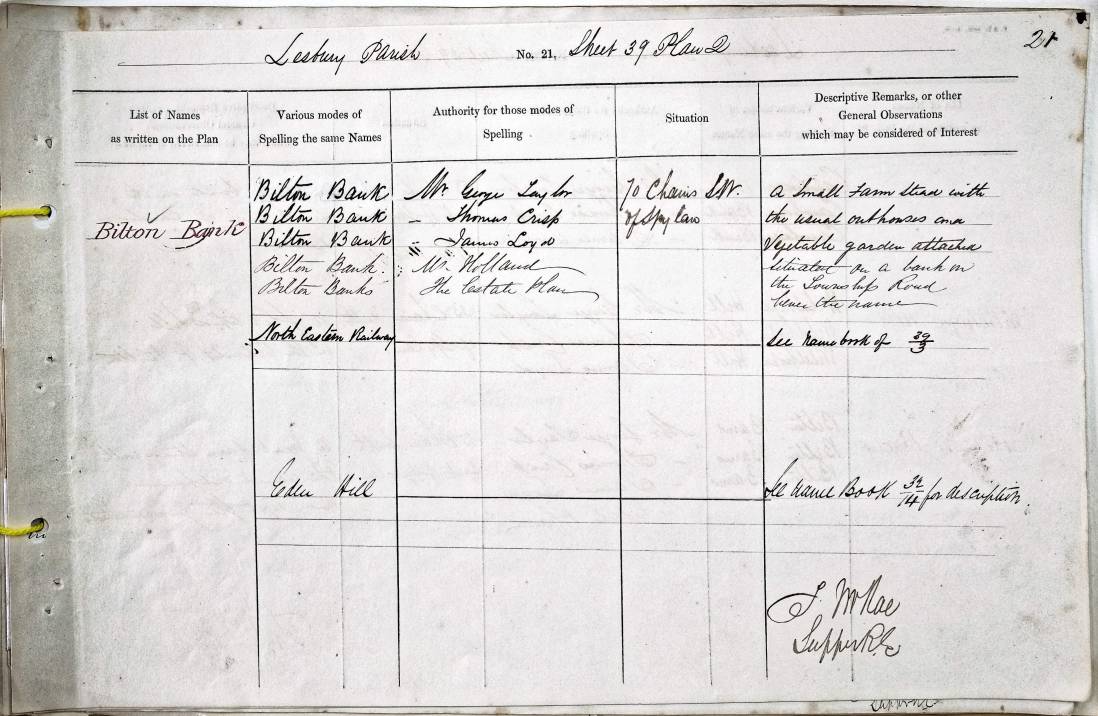 Lesbury Parish No. 21, Sheet 39 Plan 2
21
List of Names
as written on the Plan
Various modes of
Spelling the same Names
Authority for those modes of
Spelling
Situation
Descriptive Remarks, or other
General Observations
which may be considered of Interest
Bilton Bank
Bilton Bank Mr. George Taylor 70 Chains S.W. A Small Farm Stead with
Bilton Bank – Thomas Crisp of Spy law the usual outhouses and
Bilton Bank " James Loyd Vegetable garden attached
Bilton Bank. Mr. Holland situated on a bank on
Bilton Banks The Estate Plan the Township Road
hence the name
North Eastern Railway See Name book of 39/3
Eden Hill See Name Book 39/14 for description.
J. McRae
Sapper R.E.